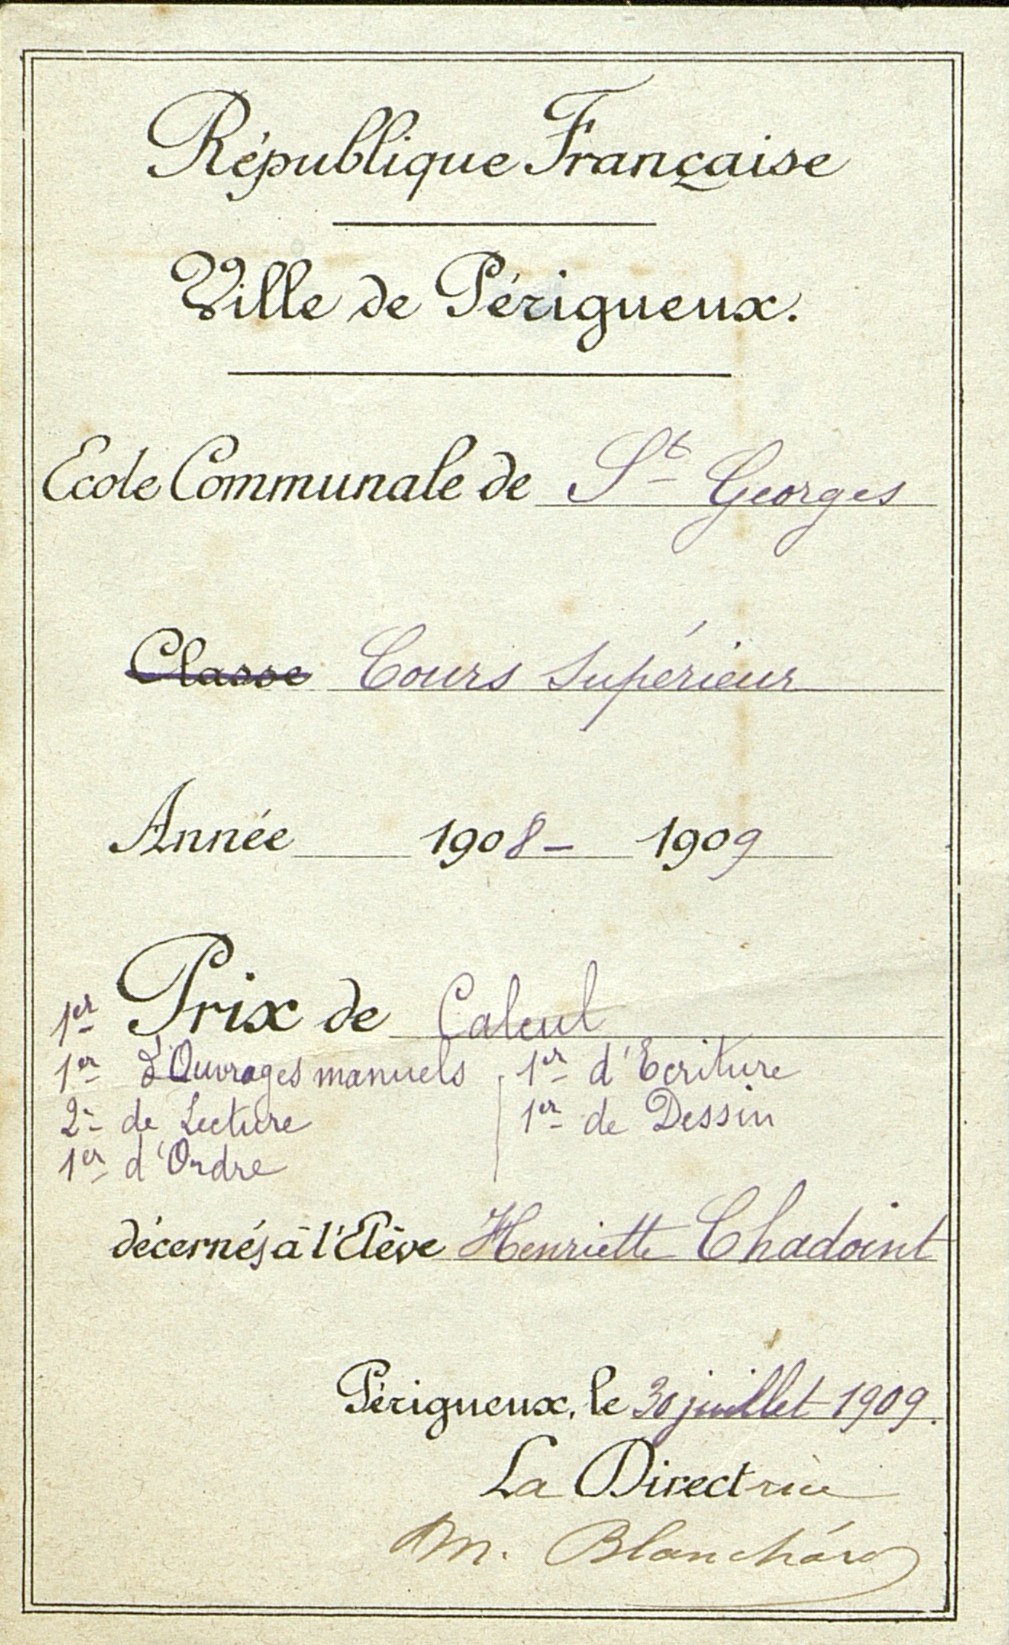 République Française
Ville de Périgueux.
Ecole Communale de St Georges
Classe Cours Supérieur
Année 1908 - 1909
1er Prix de Calcul
1er d'Ouvrages manuels 1er d'Ecriture
2e de Lecture 1er de Dessin
1er d'Ordre
décernés à l'Elève Henriette Chadoint
Périgueux, le 30 juillet 1909.
La Directrice
M. Blanchard